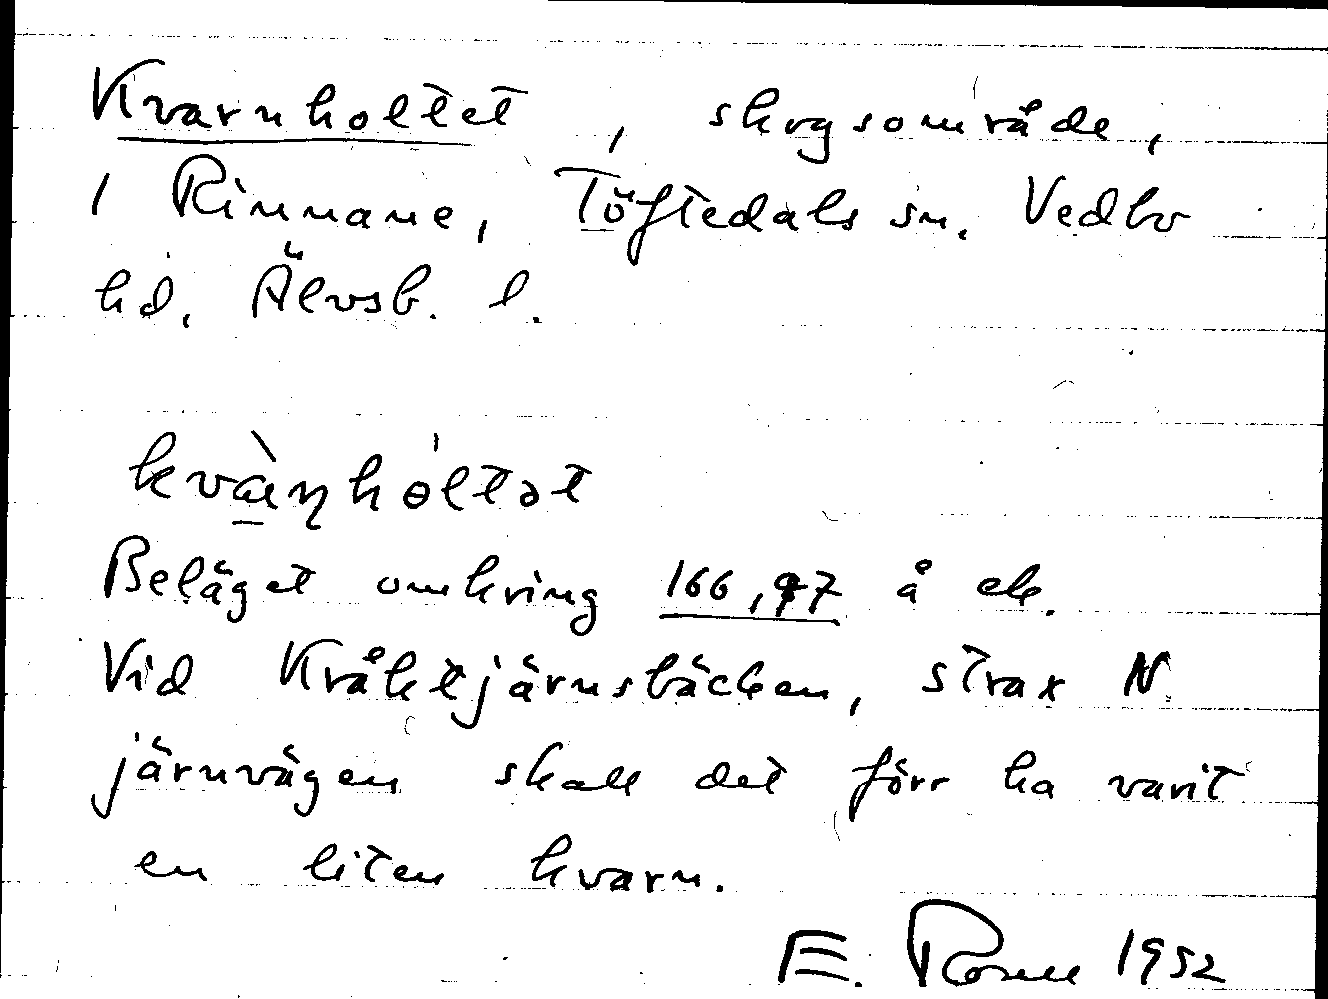 Kvarnholtet, skogsområde,
i Rinnane, Töftedals sn. Vedbo
hd. Älvsb. l.
kvànhóltət
Beläget omkring 166, å ek.
Vid Kråktjärnsbäcken, strax N
järnvägen skall det förr ha varit
en liten kvarn.
E. Rosell 1952